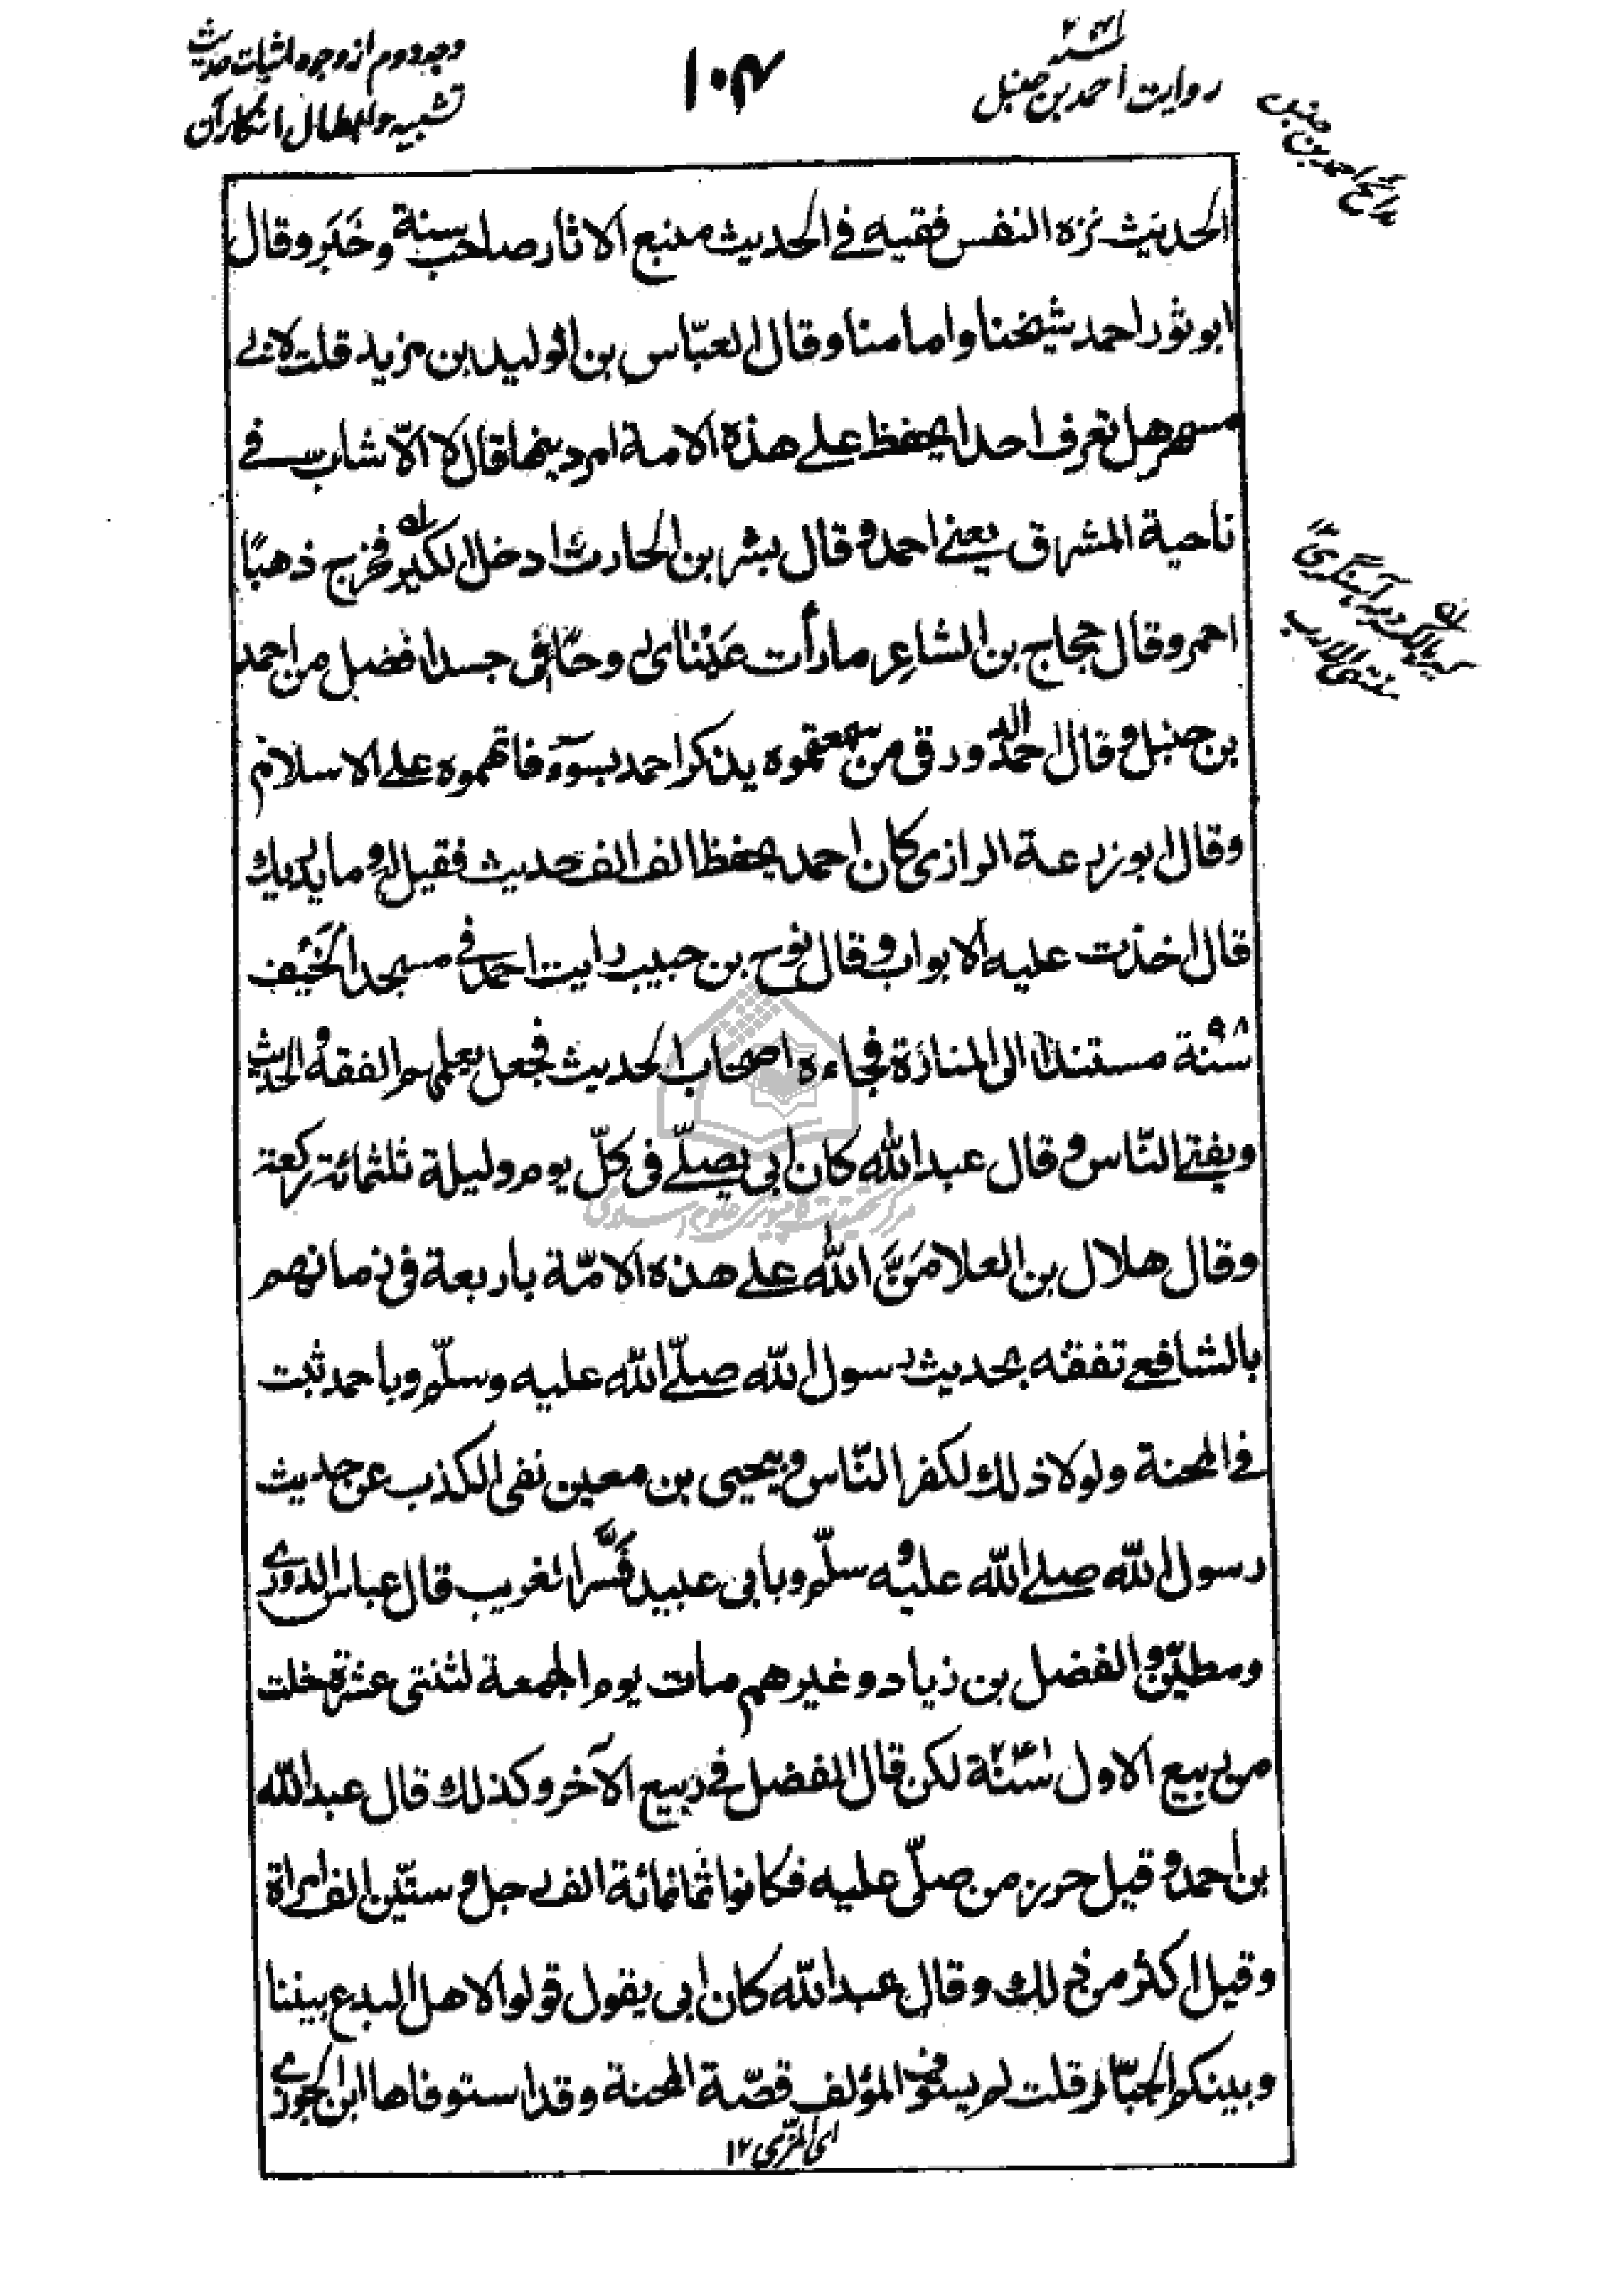 وجه دوم از وجوه اثبات حدیث
تشبیه و ابطال انکار آن
۱۰۴
۲۴۱
روایت احمد بن حنبل
مدائح احمد بن حنبل
الحدیث نزه النفس فقیه فے الحدیث متبع الاثار صاحب سنة وخَبَر وقال
ابو ثور احمد شیخنا وامامنا وقال العبّاس بن الولید بن مزید قلت لابے
مسهر هل تعرف احدا یحفظ علے هذه الامة امر دینها قال لا الّا شابّ فے
ناحیة المشرق یعنے احمد وقال بشر بن الحارث ادخل الکیر فخرج ذهبًا
احمر وقال حجاج بن الشاعر ما رأت عَیْنای روحًا فی جسد افضل من احمد
بن حنبل وقال احمد الدورقی من سمعتموه یذکر احمد بسوء فاتهموه علے الاسلام
وقال ابو زرعة الرازی کان احمد یحفظ الف الف حدیث فقیل له وما یدریك
قال اخذت علیه الابواب وقال نوح بن حبیب رایت احمد فی مسجد الخَیْف
سنة ۹۸ مستندا الی المنارة فجاءه اصحاب الحدیث فجعل یعلمهم الفقه والحدیث
ویفتے النّاس وقال عبد الله کان ابی یصلّے فی کلّ یوم ولیلة ثلثمائة رکعة
وقال هلال بن العلا مَنَّ الله علے هذه الامّة باربعة فی زمانهم
بالشافعے تفقه بحدیث رسول الله صلّے الله علیه وسلّم وباحمد ثبت
فے المحنة ولولا ذلك لکفر النّاس وبیحیی بن معین نفی الکذب عن حدیث
رسول الله صلے الله علیه وسلّم وبابی عبید فَسَّر الغریب قال عباس الدوری
ومطیّن والفضل بن زیاد وغیرهم مات یوم الجمعة لثنتی عشرة خلت
من ربیع الاول سنة ۲۴۱ لکن قال الفضل فے ربیع الآخر وکذلك قال عبد الله
بن احمد وقیل حرز من صلّی علیه فکانوا ثمانمائة الف رجل وستّین الف امراة
وقیل اکثر من ذلك وقال عبد الله کان ابی یقول قولوا لاهل البدع بیننا
وبینکم الجنائز وقلت لم یستوف المؤلف قصّة المحنة وقد استوفاها ابن الجوزی
ای المزّی ۱۲
کیر بالکسر دمه آهنگری ۱۲
منتهی الارب
مرکز تحقیقات کامپیوتری علوم اسلامی